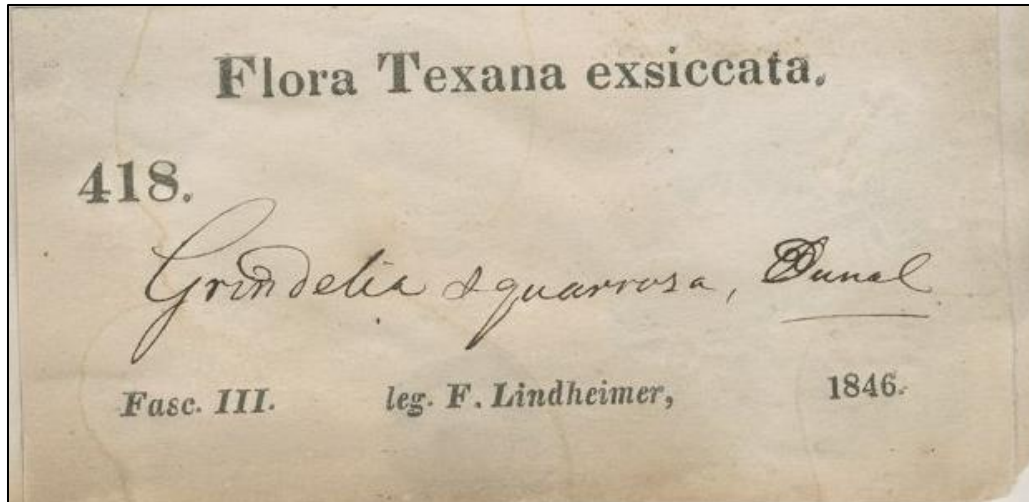 Flora Texana exsiccata.
418.
Grindelia squarrosa, Dunal
Fasc. III. leg. F. Lindheimer, 1846.